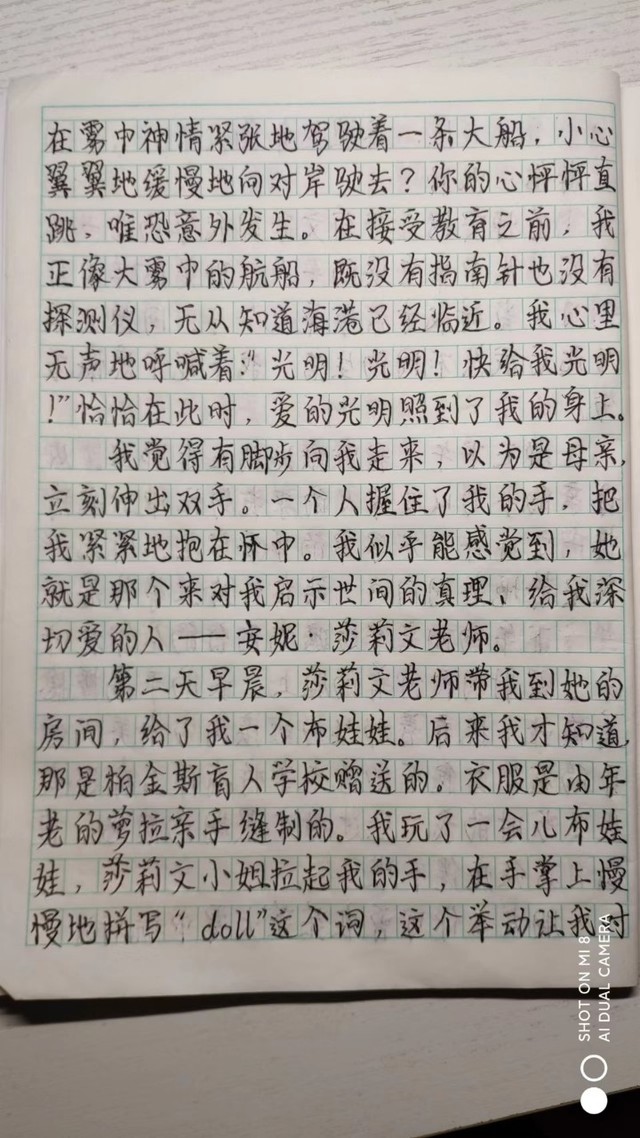 在雾中神情紧张地驾驶着一条大船，小心
翼翼地缓慢地向对岸驶去？你的心怦怦直
跳，唯恐意外发生。在接受教育之前，我
正像大雾中的航船，既没有指南针也没有
探测仪，无从知道海港已经临近。我心里
无声地呼喊着：“光明！光明！快给我光明
！”恰恰在此时，爱的光明照到了我的身上。
我觉得有脚步向我走来，以为是母亲，
立刻伸出双手。一个人握住了我的手，把
我紧紧地抱在怀中。我似乎能感觉到，她
就是那个来对我启示世间的真理、给我深
切爱的人——安妮·莎莉文老师。
第二天早晨，莎莉文老师带我到她的
房间，给了我一个布娃娃。后来我才知道，
那是柏金斯盲人学校赠送的。衣服是由年
老的萝拉亲手缝制的。我玩了一会儿布娃
娃，莎莉文小姐拉起我的手，在手掌上慢
慢地拼写“doll”这个词，这个举动让我对
SHOT ON MI 8
AI DUAL CAMERA